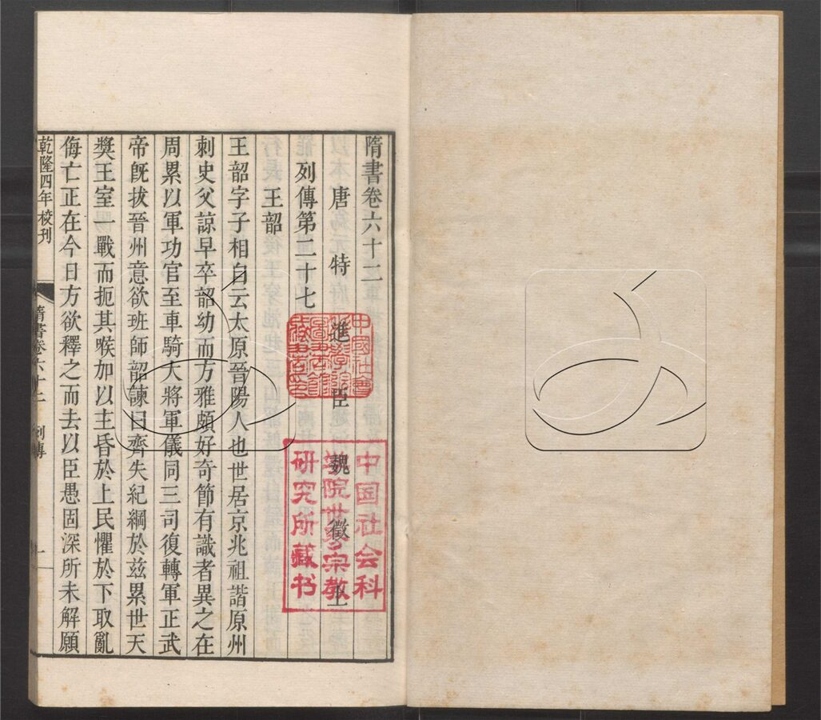 隋書卷六十二
唐特進臣魏徵上
列傳第二十七
王韶
王韶字子相自云太原晉陽人也世居京兆祖諧原州
刺史父諒早卒韶幼而方雅頗好奇節有識者異之在
周累以軍功官至車騎大將軍儀同三司復轉軍正武
帝旣拔晉州意欲班師韶諫曰齊失紀綱於兹累世天
奬王室一戰而扼其喉加以主昏於上民懼於下取亂
侮亡正在今日方欲釋之而去以臣愚固深所未解願
乾隆四年校刊
隋書卷六十二 列傳
一
中国社会科
学院世界宗教
研究所藏书